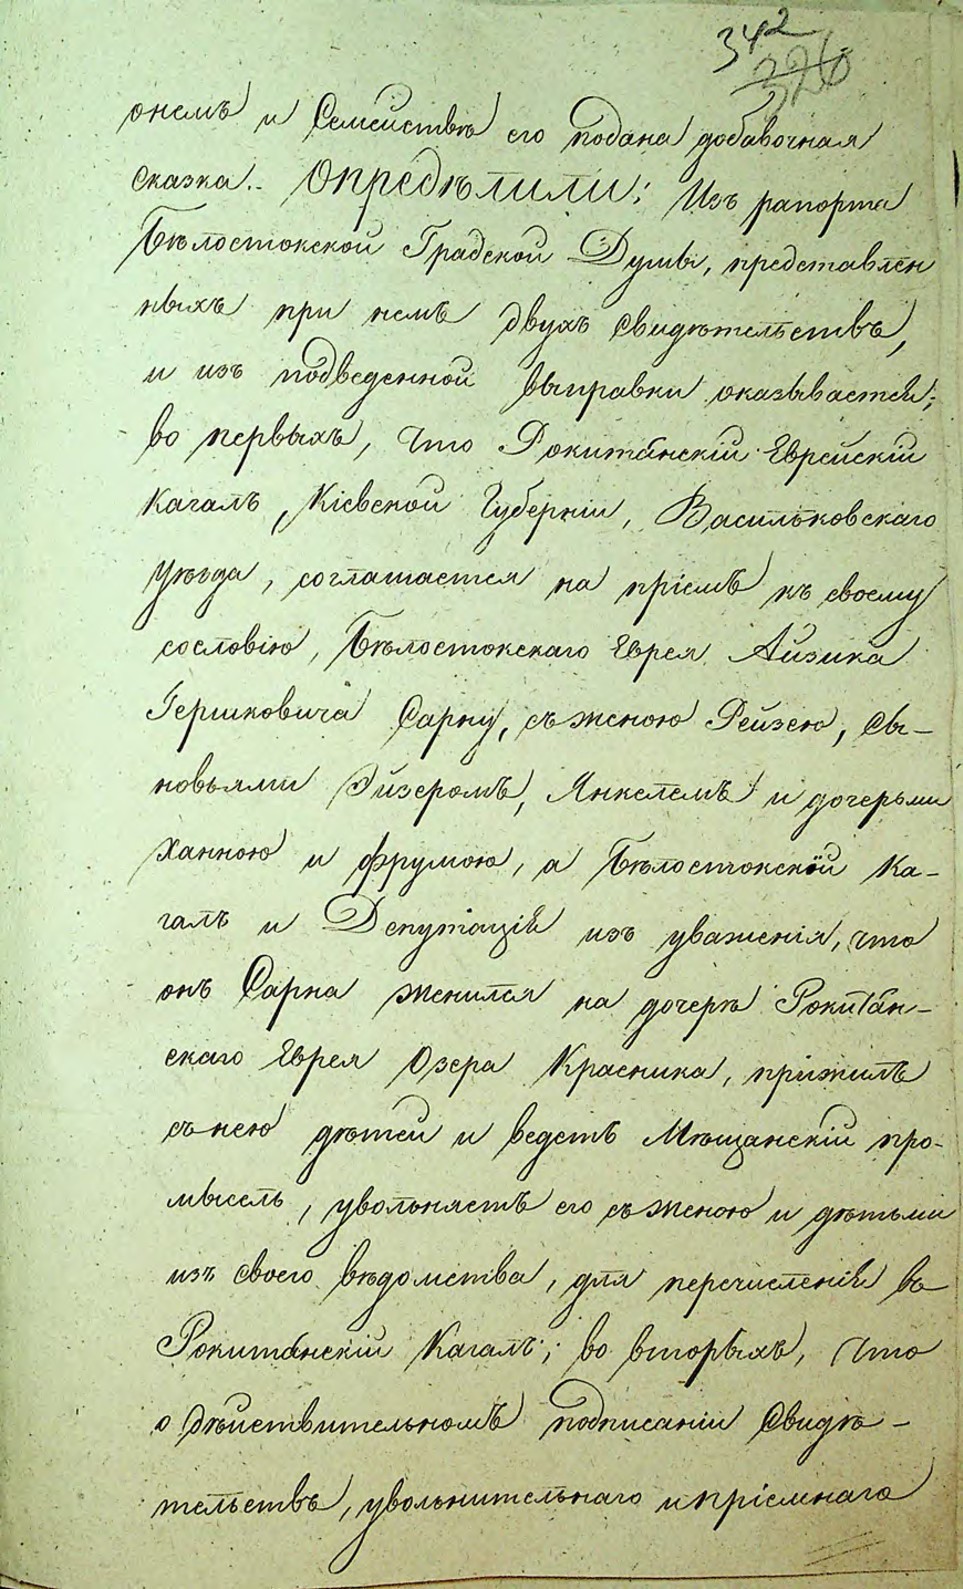 342
326
онемъ и Семействѣ его подана добавочная
сказка. Опредѣлили: Изъ рапорта
Бѣлостокской Градской Думы, представлен
ныхъ при немъ двухъ свидѣтельствъ,
и изъ подведенной выправки оказывается;
во первыхъ, что Рокитанскій Еврейскій
Кагалъ, Кіевской Губерніи, Васильковскаго
уѣзда, соглашается на пріемъ къ своему
сословію, Бѣлостокскаго Еврея Айзика
Гершковича Сарну, съ женою Рейзею, сы-
новьями Эйзеромъ, Янкелемъ и дочерьми
Ханною и Фрумою, а Бѣлостокской Ка-
галъ и Депутація изъ уваженія, что
онъ Сарна женился на дочерѣ Рокитан-
скаго Еврея Озера Красника, прижилъ
съ нею дѣтей и ведетъ Мѣщанскій про-
мыслъ, увольняетъ его съ женою и дѣтьми
изъ своего вѣдомства, для перечисленія въ
Рокитанскій Кагалъ; во вторыхъ, что
о дѣйствительномъ подписаніи Свидѣ-
тельствъ, увольнительнаго и пріемнаго